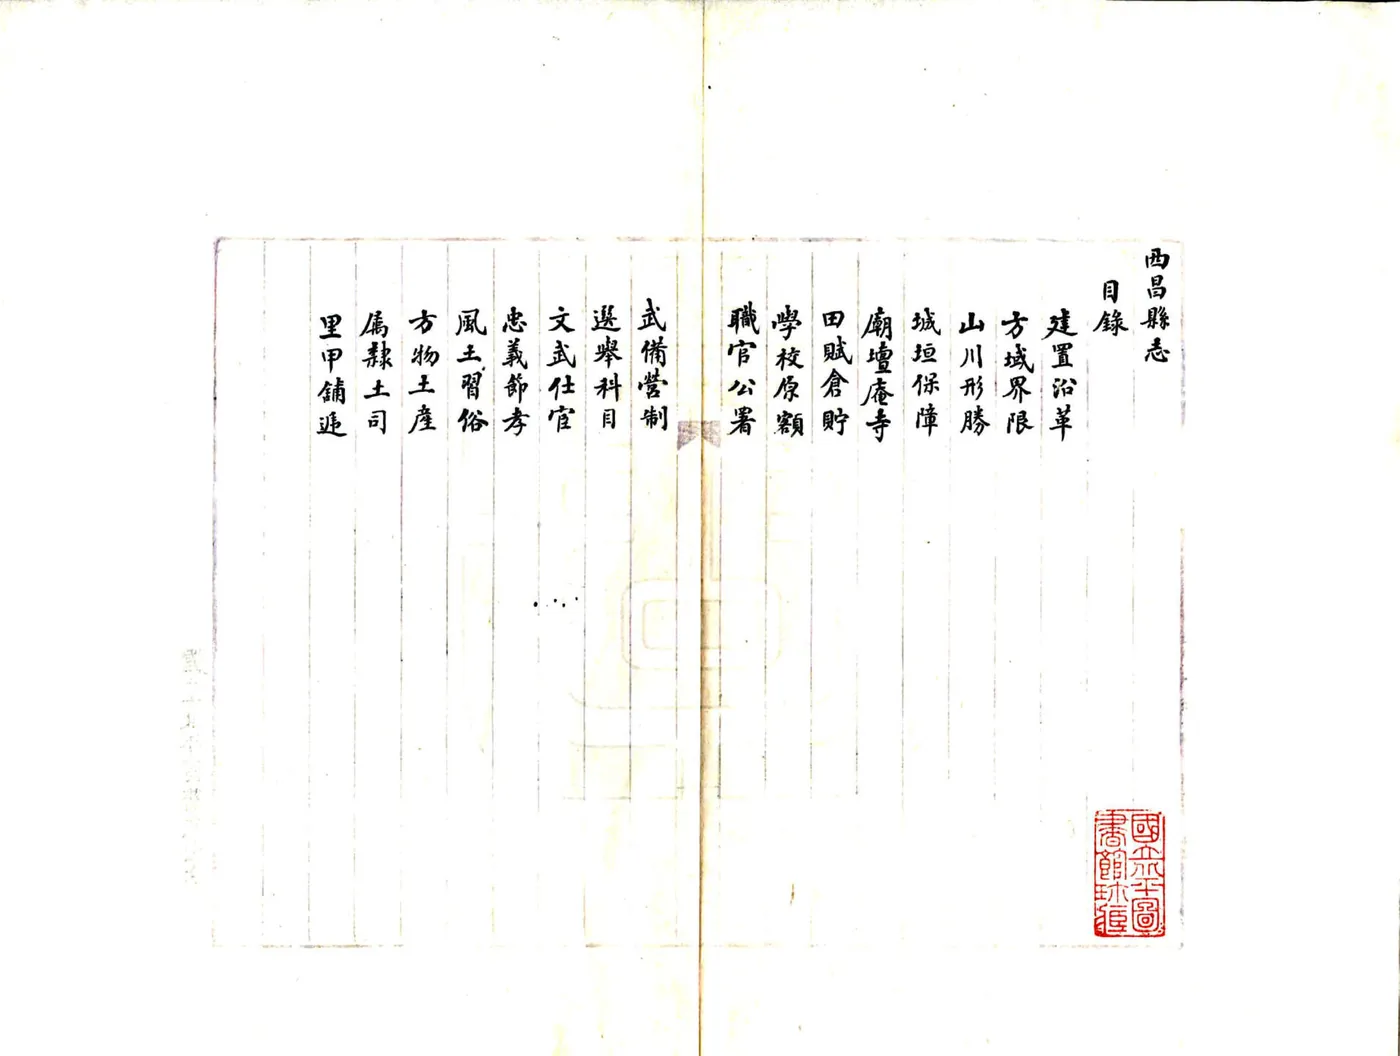 西昌縣志
目錄
建置沿革
方域界限
山川形勝
城垣保障
廟壇庵寺
田賦倉貯
學校原額
職官公署
武備營制
選舉科目
文武仕宦
忠義節孝
風土習俗
方物土産
属隸土司
里甲舖遞
國立北平圖
書館珍藏